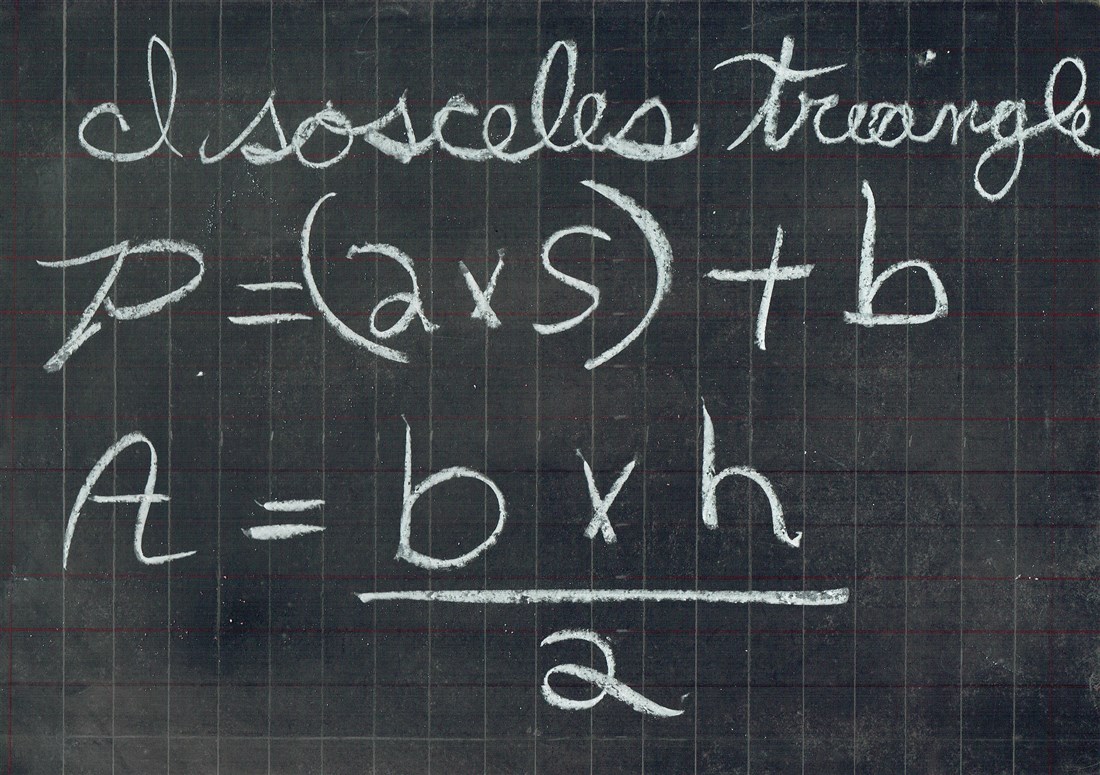 Isosceles triangle
P = (2 x S) + b
A = b x h
2